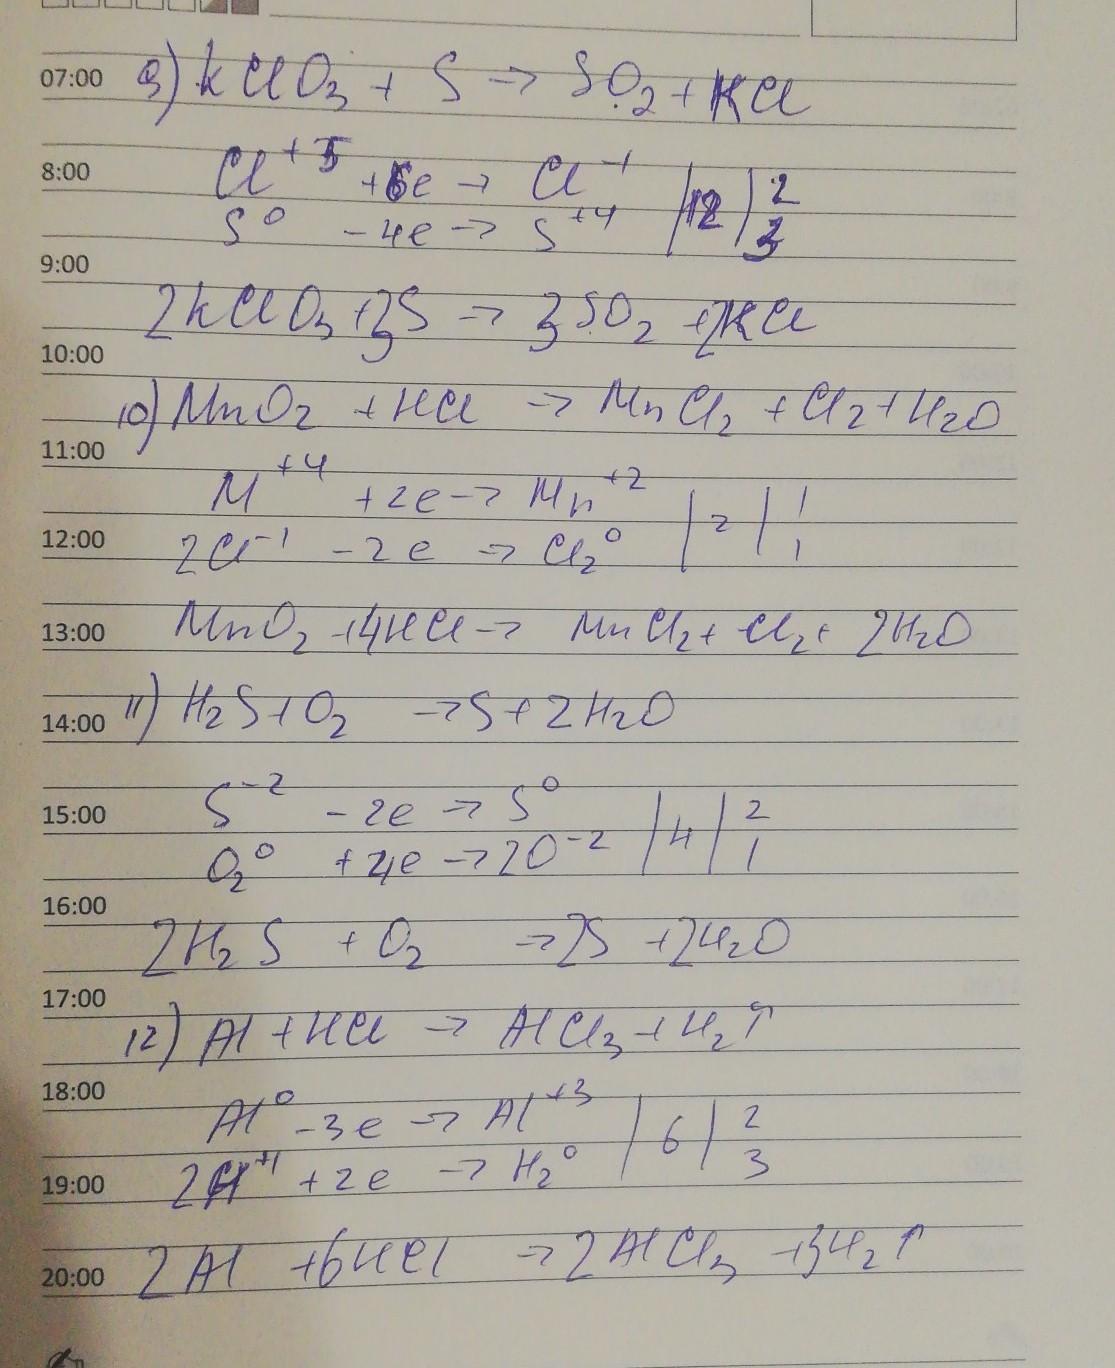 07:00 9) KClO₃ + S → SO₂ + KCl
8:00 Cl⁺⁵ + 6e → Cl⁻¹ | 12 | 2
S⁰ - 4e → S⁺⁴ 3
9:00
2KClO₃ + 3S → 3SO₂ + 2KCl
10:00
10) MnO₂ + HCl → MnCl₂ + Cl₂ + H₂O
11:00
M⁺⁴ + 2e → Mn⁺² | 2 | 1
12:00 2Cl⁻¹ - 2e → Cl₂⁰ 1
13:00 MnO₂ + 4HCl → MnCl₂ + Cl₂ + 2H₂O
14:00 11) H₂S + O₂ → S + 2H₂O
15:00 S⁻² - 2e → S⁰ | 4 | 2
O₂⁰ + 4e → 2O⁻² 1
16:00
2H₂S + O₂ → 2S + 2H₂O
17:00
12) Al + HCl → AlCl₃ + H₂↑
18:00
Al⁰ - 3e → Al⁺³ | 6 | 2
19:00 2H⁺¹ + 2e → H₂⁰ 3
20:00 2Al + 6HCl → 2AlCl₃ + 3H₂↑